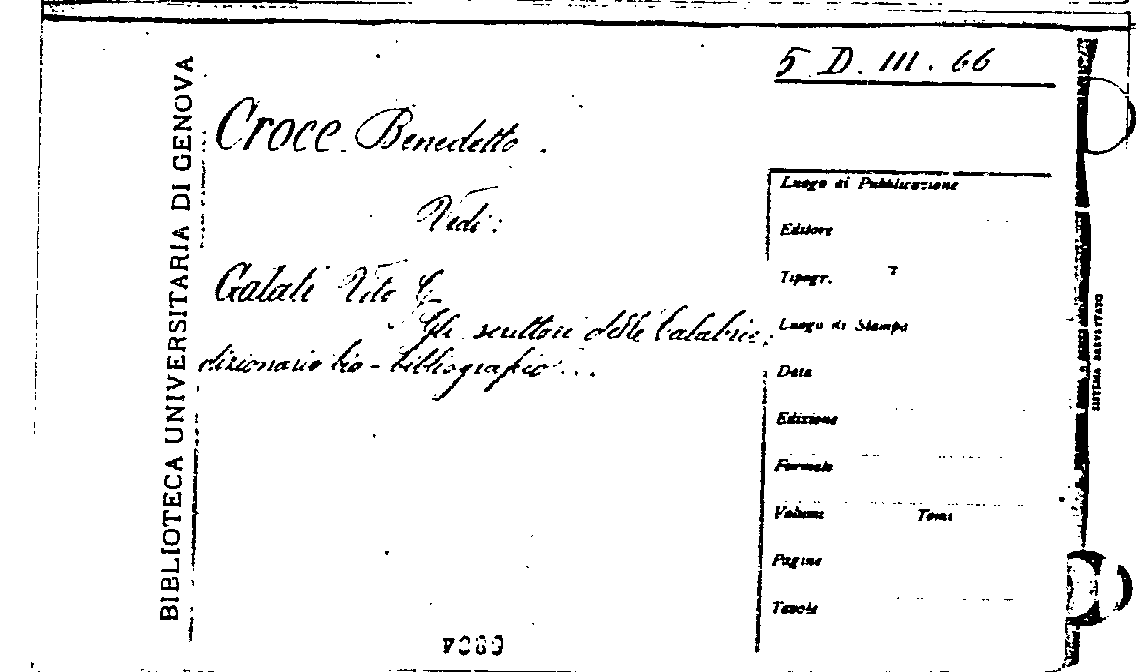 5 D. III. 66
BIBLIOTECA UNIVERSITARIA DI GENOVA
Croce Benedetto.
Vedi:
Galati Vito G.
Gli scrittori delle Calabrie:
dizionario bio-bibliografico...
Luogo di Pubblicazione
Editore
Tipogr.
Luogo di Stampa
Data
Edizione
Formato
Volume Tomi
Pagine
Tavole